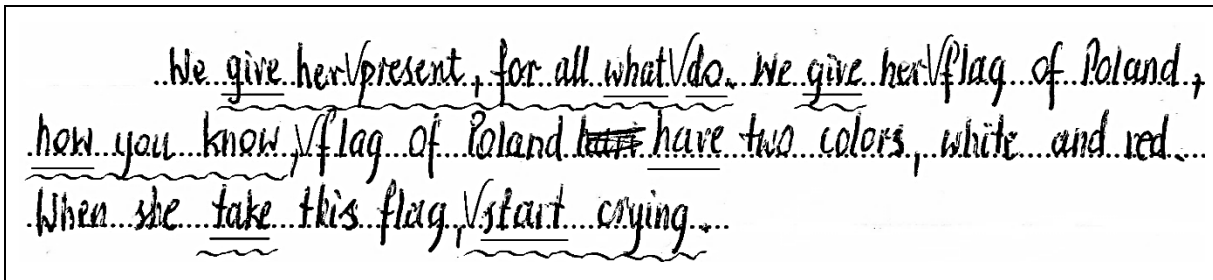 We give her present, for all what do. We give her flag of Poland,
how you know, flag of Poland have two colors, white and red.
When she take this flag, start crying.